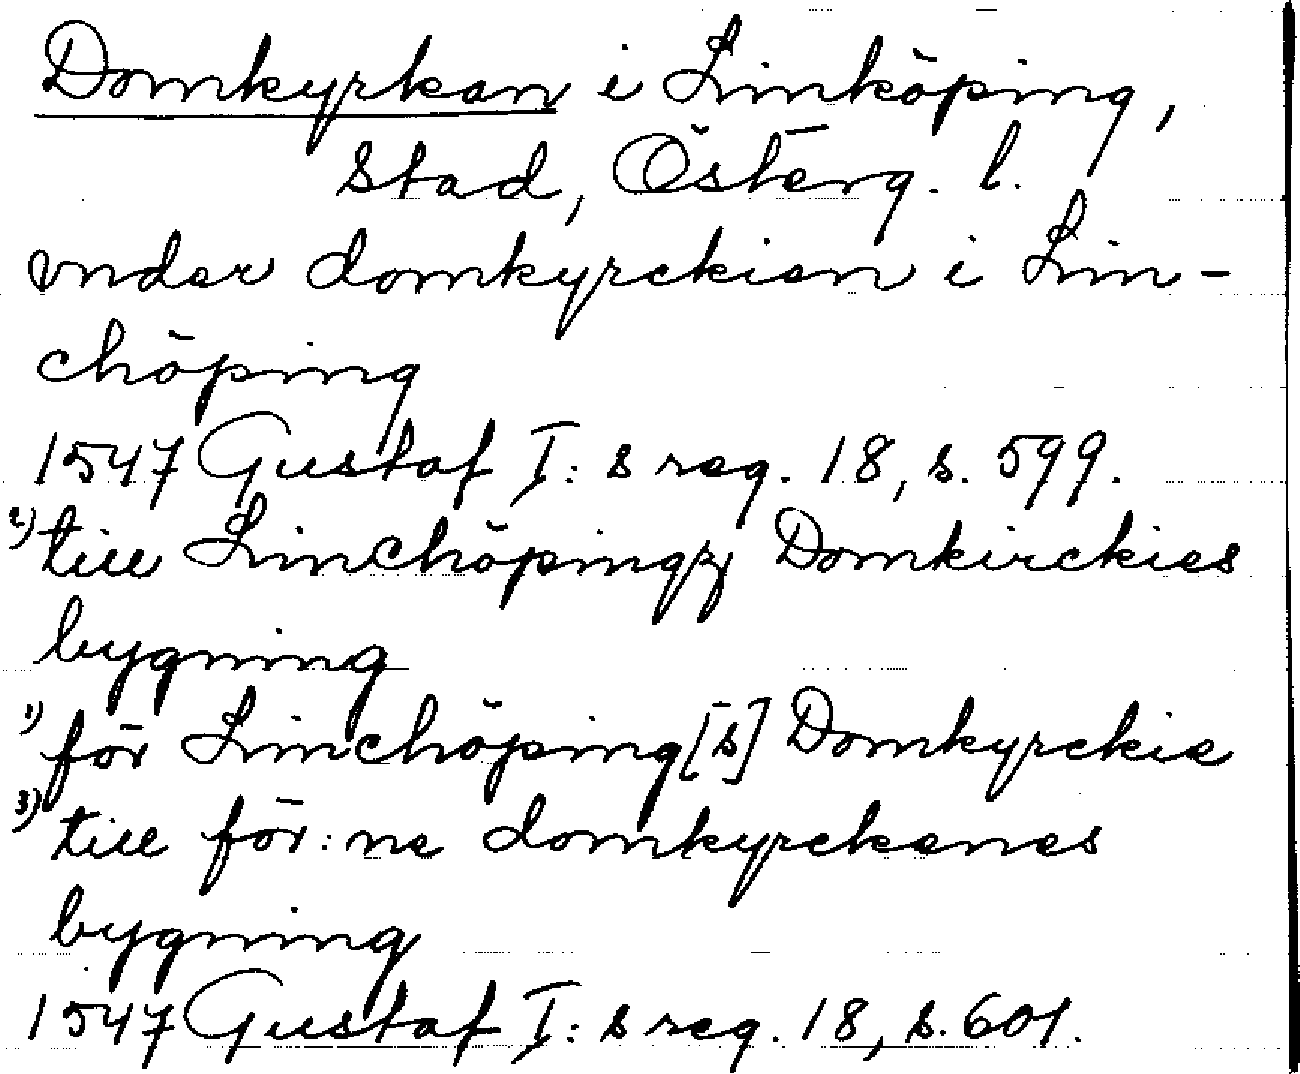 Domkyrkan i Linköping,
stad, Österg. l.
vnder domkyrckien i Lin-
chöping
1547 Gustaf I:s reg. 18, s. 599.
2) till Linchöpingz Domkirckies
bygning
1) för Linchöping[s] Domkyrckie
3) till för:ne domkyrckenes
bygning
1547 Gustaf I:s reg. 18, s. 601.